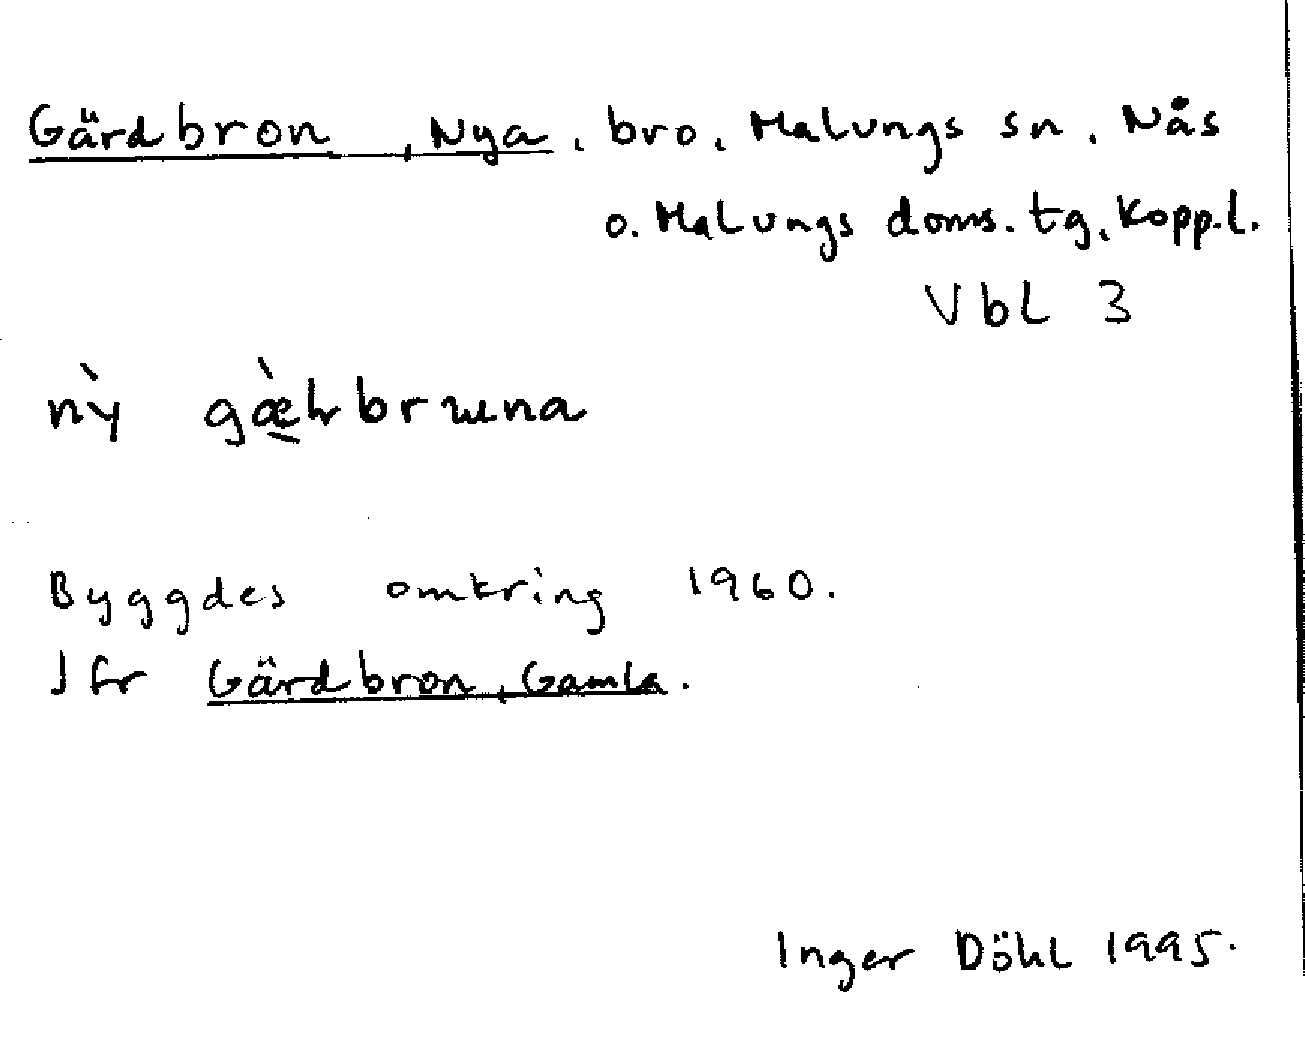 Gärdbron, Nya, bro, Malungs sn, Nås
o. Malungs doms. tg, Kopp.l.
Vbl 3
nỳ
Byggdes omkring 1960.
Jfr Gärdbron, Gamla.
Inger Döhl 1995.